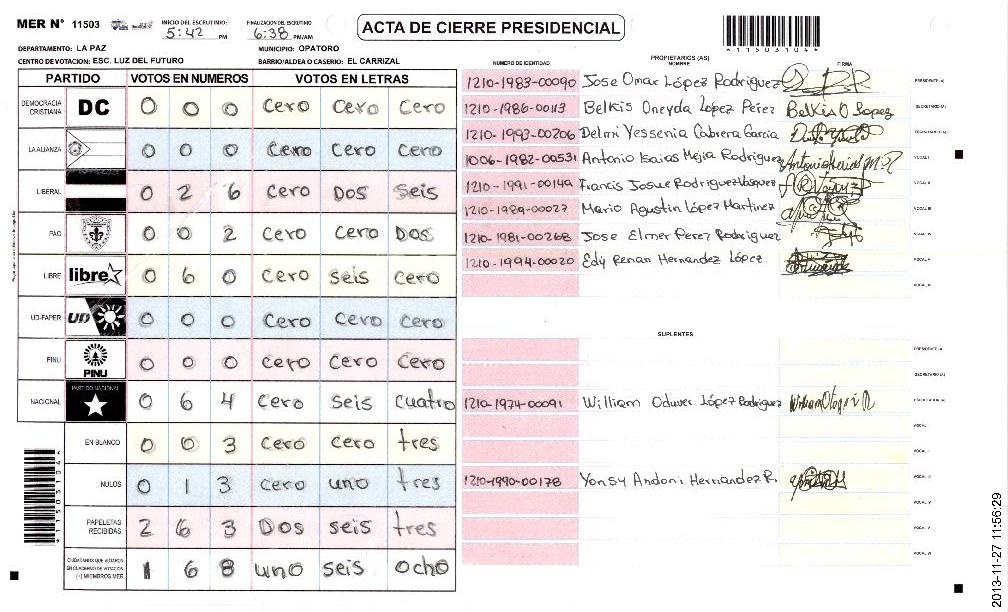 MER N° 11503
INICIO DEL ESCRUTINIO
5:42 PM
FINALIZACION DEL ESCRUTINIO
6:38 PM/AM
ACTA DE CIERRE PRESIDENCIAL
*11503104*
DEPARTAMENTO: LA PAZ
MUNICIPIO: OPATORO
CENTRO DE VOTACION: ESC. LUZ DEL FUTURO
BARRIO/ALDEA O CASERIO: EL CARRIZAL
PARTIDO VOTOS EN NUMEROS VOTOS EN LETRAS
DEMOCRACIA CRISTIANA DC 0 0 0 Cero Cero Cero
LA ALIANZA 0 0 0 Cero Cero Cero
LIBERAL 0 2 6 Cero Dos Seis
PAC 0 0 2 Cero Cero Dos
LIBRE libre 0 6 0 Cero seis Cero
UD-FAPER UD 0 0 0 Cero Cero Cero
PINU PINU 0 0 0 Cero Cero Cero
NACIONAL PARTIDO NACIONAL 0 6 4 Cero seis cuatro
EN BLANCO 0 0 3 Cero cero tres
NULOS 0 1 3 cero uno tres
PAPELETAS RECIBIDAS 2 6 3 Dos seis tres
CIUDADANOS QUE VOTARON EN CUADERNO DE VOTACION (+) MIEMBROS MER 1 6 8 uno seis ocho
*11503104*
PROPIETARIOS (AS)
NUMERO DE IDENTIDAD NOMBRE FIRMA
1210-1983-00090 Jose Omar López Rodriguez PRESIDENTE (A)
1210-1986-00113 Belkis Oneyda López Pérez Belkis O Lopez SECRETARIO (A)
1210-1993-00206 Delmi Yessenia Cabrera Garcia ESCRUTADOR (A)
1006-1982-00531 Antonio Isaias Mejia Rodriguez VOCAL I
1210-1991-00149 Francis Josue Rodriguez Vasquez VOCAL II
1210-1989-00027 Mario Agustin López Martinez VOCAL III
1210-1981-00268 Jose Elmer Perez Rodriguez VOCAL IV
1210-1994-00020 Edy Renan Hernandez López VOCAL V
VOCAL VI
SUPLENTES
PRESIDENTE (A)
SECRETARIO (A)
1210-1974-00091 William Oduver López Rodriguez ESCRUTADOR (A)
VOCAL I
VOCAL II
1210-1990-00178 Yonsy Andoni Hernandez R. VOCAL III
VOCAL IV
VOCAL V
VOCAL VI
2013-11-27 11:56:29